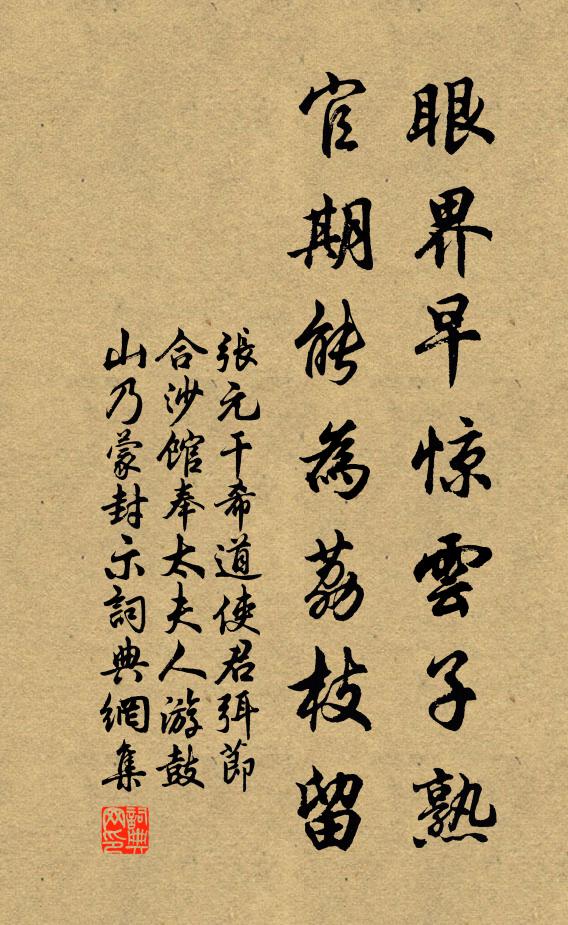 眼界早惊雲子熟
官期能為荔枝留
張元干希道使君弭節
合沙館奉太夫人游鼓
山乃蒙封示詞典網集
詞典网印